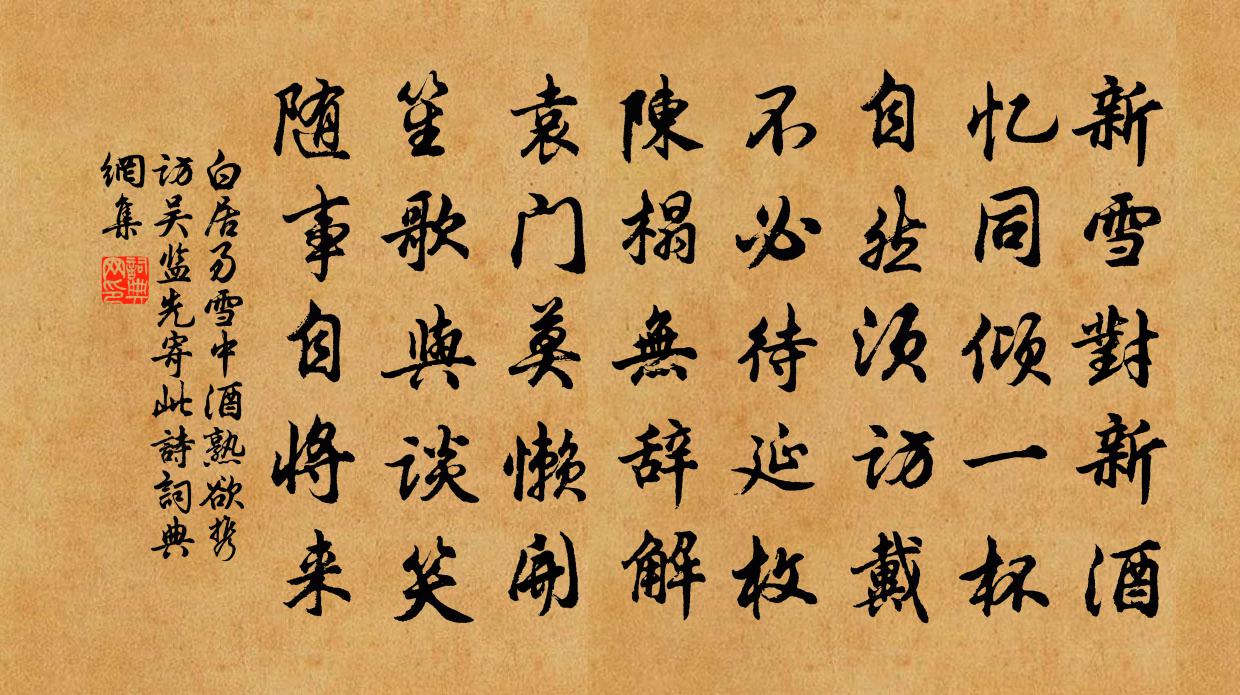 新雪對新酒
忆同倾一杯
自然须访戴
不必待延枚
陳榻無辞解
袁门莫懒開
笙歌與谈笑
随事自将来
白居易雪中酒熟欲携
访吴监先寄此詩詞典
網集
詞典网印